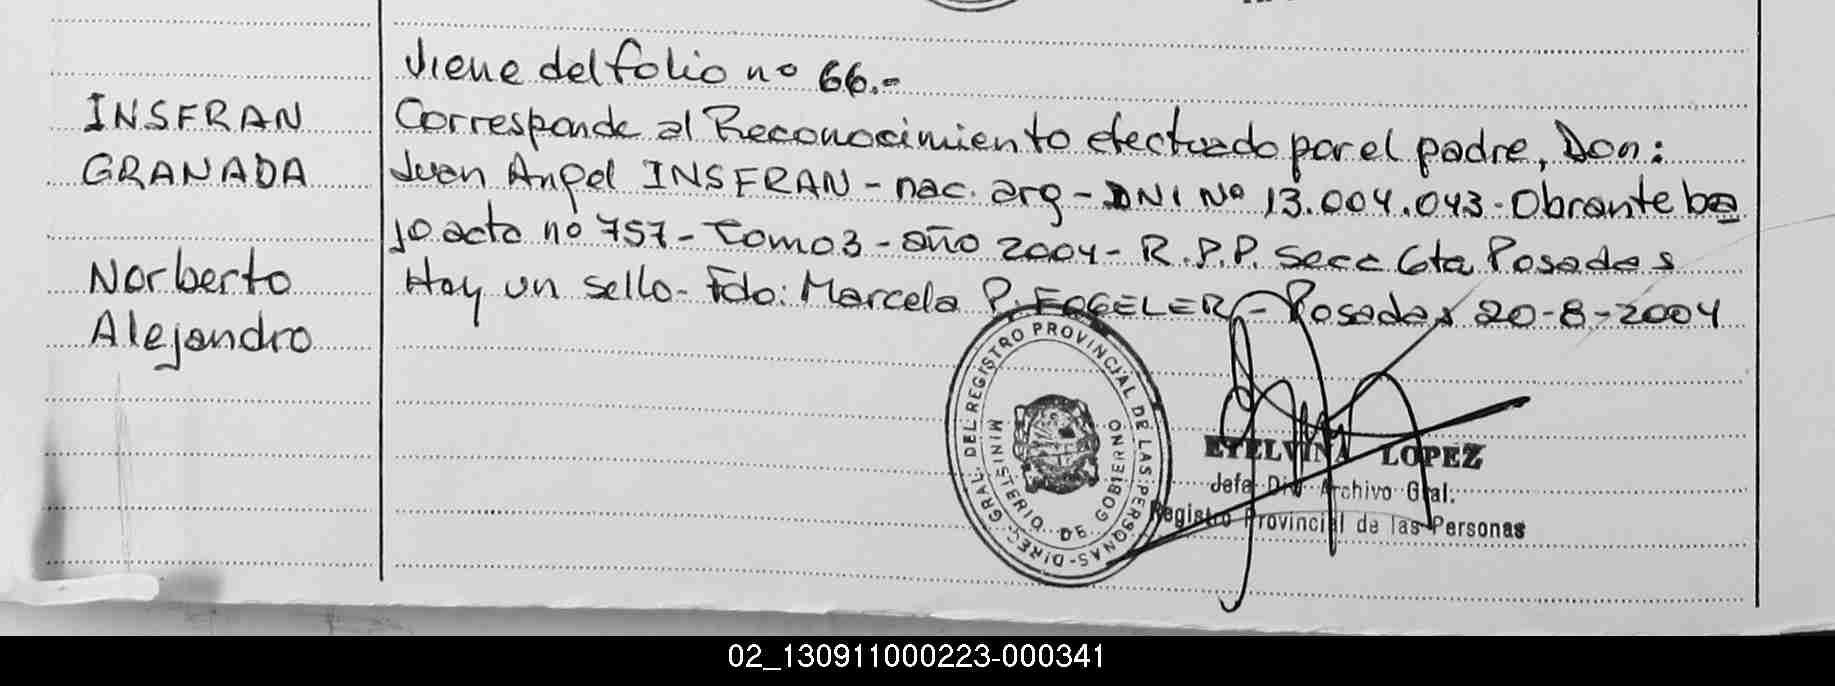 Viene del folio nº 66.-
INSFRAN
GRANADA
Norberto
Alejandro
Corresponde al Reconocimiento efectuado por el padre, Don:
Juan Angel INSFRAN - nac. arg - DNI Nº 13.004.043 - Obrante ba
jo acta nº 757 - Tomo 3 - año 2004 - R.P.P. Secc 6ta Posadas
Hay un sello - Fdo: Marcela P. FOGELER - Posadas 20-8-2004
DIREC. GRAL. DEL REGISTRO PROVINCIAL DE LAS PERSONAS
MINISTERIO DE GOBIERNO
ETELVINA LOPEZ
Jefa Div Archivo Gral.
Registro Provincial de las Personas
02_130911000223-000341